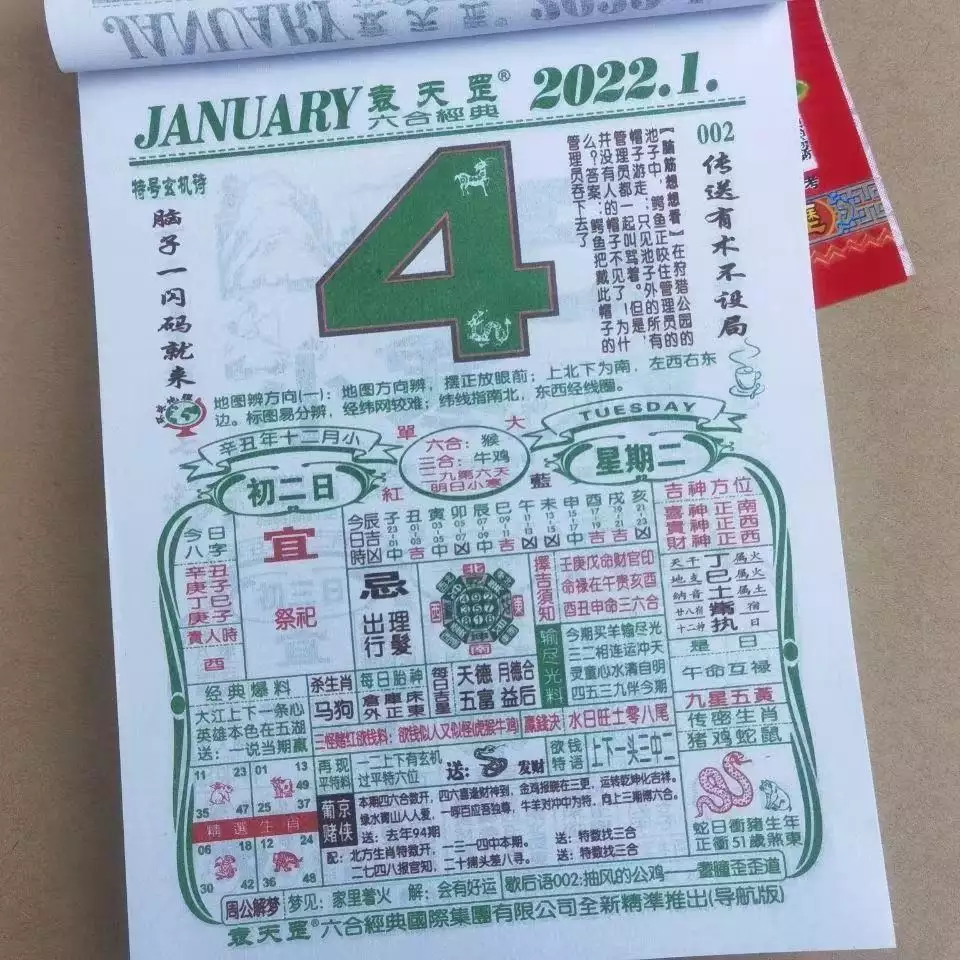 JANUARY 袁天罡® 2022.1.
六合經典
特号玄机诗
脑子一闪码就来
4
【脑筋想想看】在狩猎公园的
池子中，鳄鱼正咬住管理员的
帽子游走；只见池子外的所有
管理员都一起叫骂着。但是，
并没有人的帽子不见了！为什
么？答案：鳄鱼把戴此帽子的
管理员吞下去了
002
传送有术不设局
地图辨方向(一)：地图方向辨，摆正放眼前；上北下为南，左西右东
边。标图易分辨，经纬网较难；纬线指南北，东西经线圈。
辛丑年十二月小
初二日
單 大
紅 藍
六合：猴
三合：牛鸡
二九第六天
明日小寒
TUESDAY
星期二
今日八字
辛丑
庚子
丁巳
庚子
貴人時
酉
宜
祭祀
今日吉時
辰凶
子 丑 寅 卯 辰 巳 午 未 申 酉 戌 亥
忌
出行
理髮
北
南
擇吉須知
壬庚戊命财官印
命禄在午贵亥酉
酉丑申命三六合
吉神方位
喜神正南
貴神正西
財神正西
天干 丁 属火
地支 巳 属火
納音 土 属土
廿八宿 觜 宿
十二神 执 日
是日
午命互禄
九星五黃
传密生肖
猪鸡蛇鼠
输尽光料
今期买羊输尽光
三二相连运冲天
灵童心水清自明
四五三九伴今期
经典爆料
大江上下一条心
英雄本色在五湖
送：一说当期赢
杀生肖
马狗
每日胎神
倉庫床
外正東
每日吉星
天德 月德合
五富 益后
三怪赌红欲钱料：欲钱似人又似怪(虎猴牛鸡)
赢錢決
水日旺土零八尾
再现平特料
一二上下有玄机
过平特六位
送： 发财
欲钱特语
上下一头二中二
11 23 01 13
47 49
35 25 37
精選生肖
06 18 12 24
30 42 36 48
葡京赌侠
本期四六合数开，四六喜逢财神到，金鸡报晓在三更，运转乾坤化吉祥。
绿水青山人人爱，一呼百应吾独尊，牛羊对冲中为特，向上三期博六合。
送：去年94期 一三一四中本期。 送：特数找三合
配：北方生肖特数开，
二七四八报官知， 二十铺头差八寻。 送：特数找三合
蛇日衝豬生年
正衝51歲煞東
周公解梦
梦见：家里着火 解：会有好运
歇后语002:抽风的公鸡——
歪歪道
袁天罡 六合經典國際集團有限公司全新精準推出(导航版)